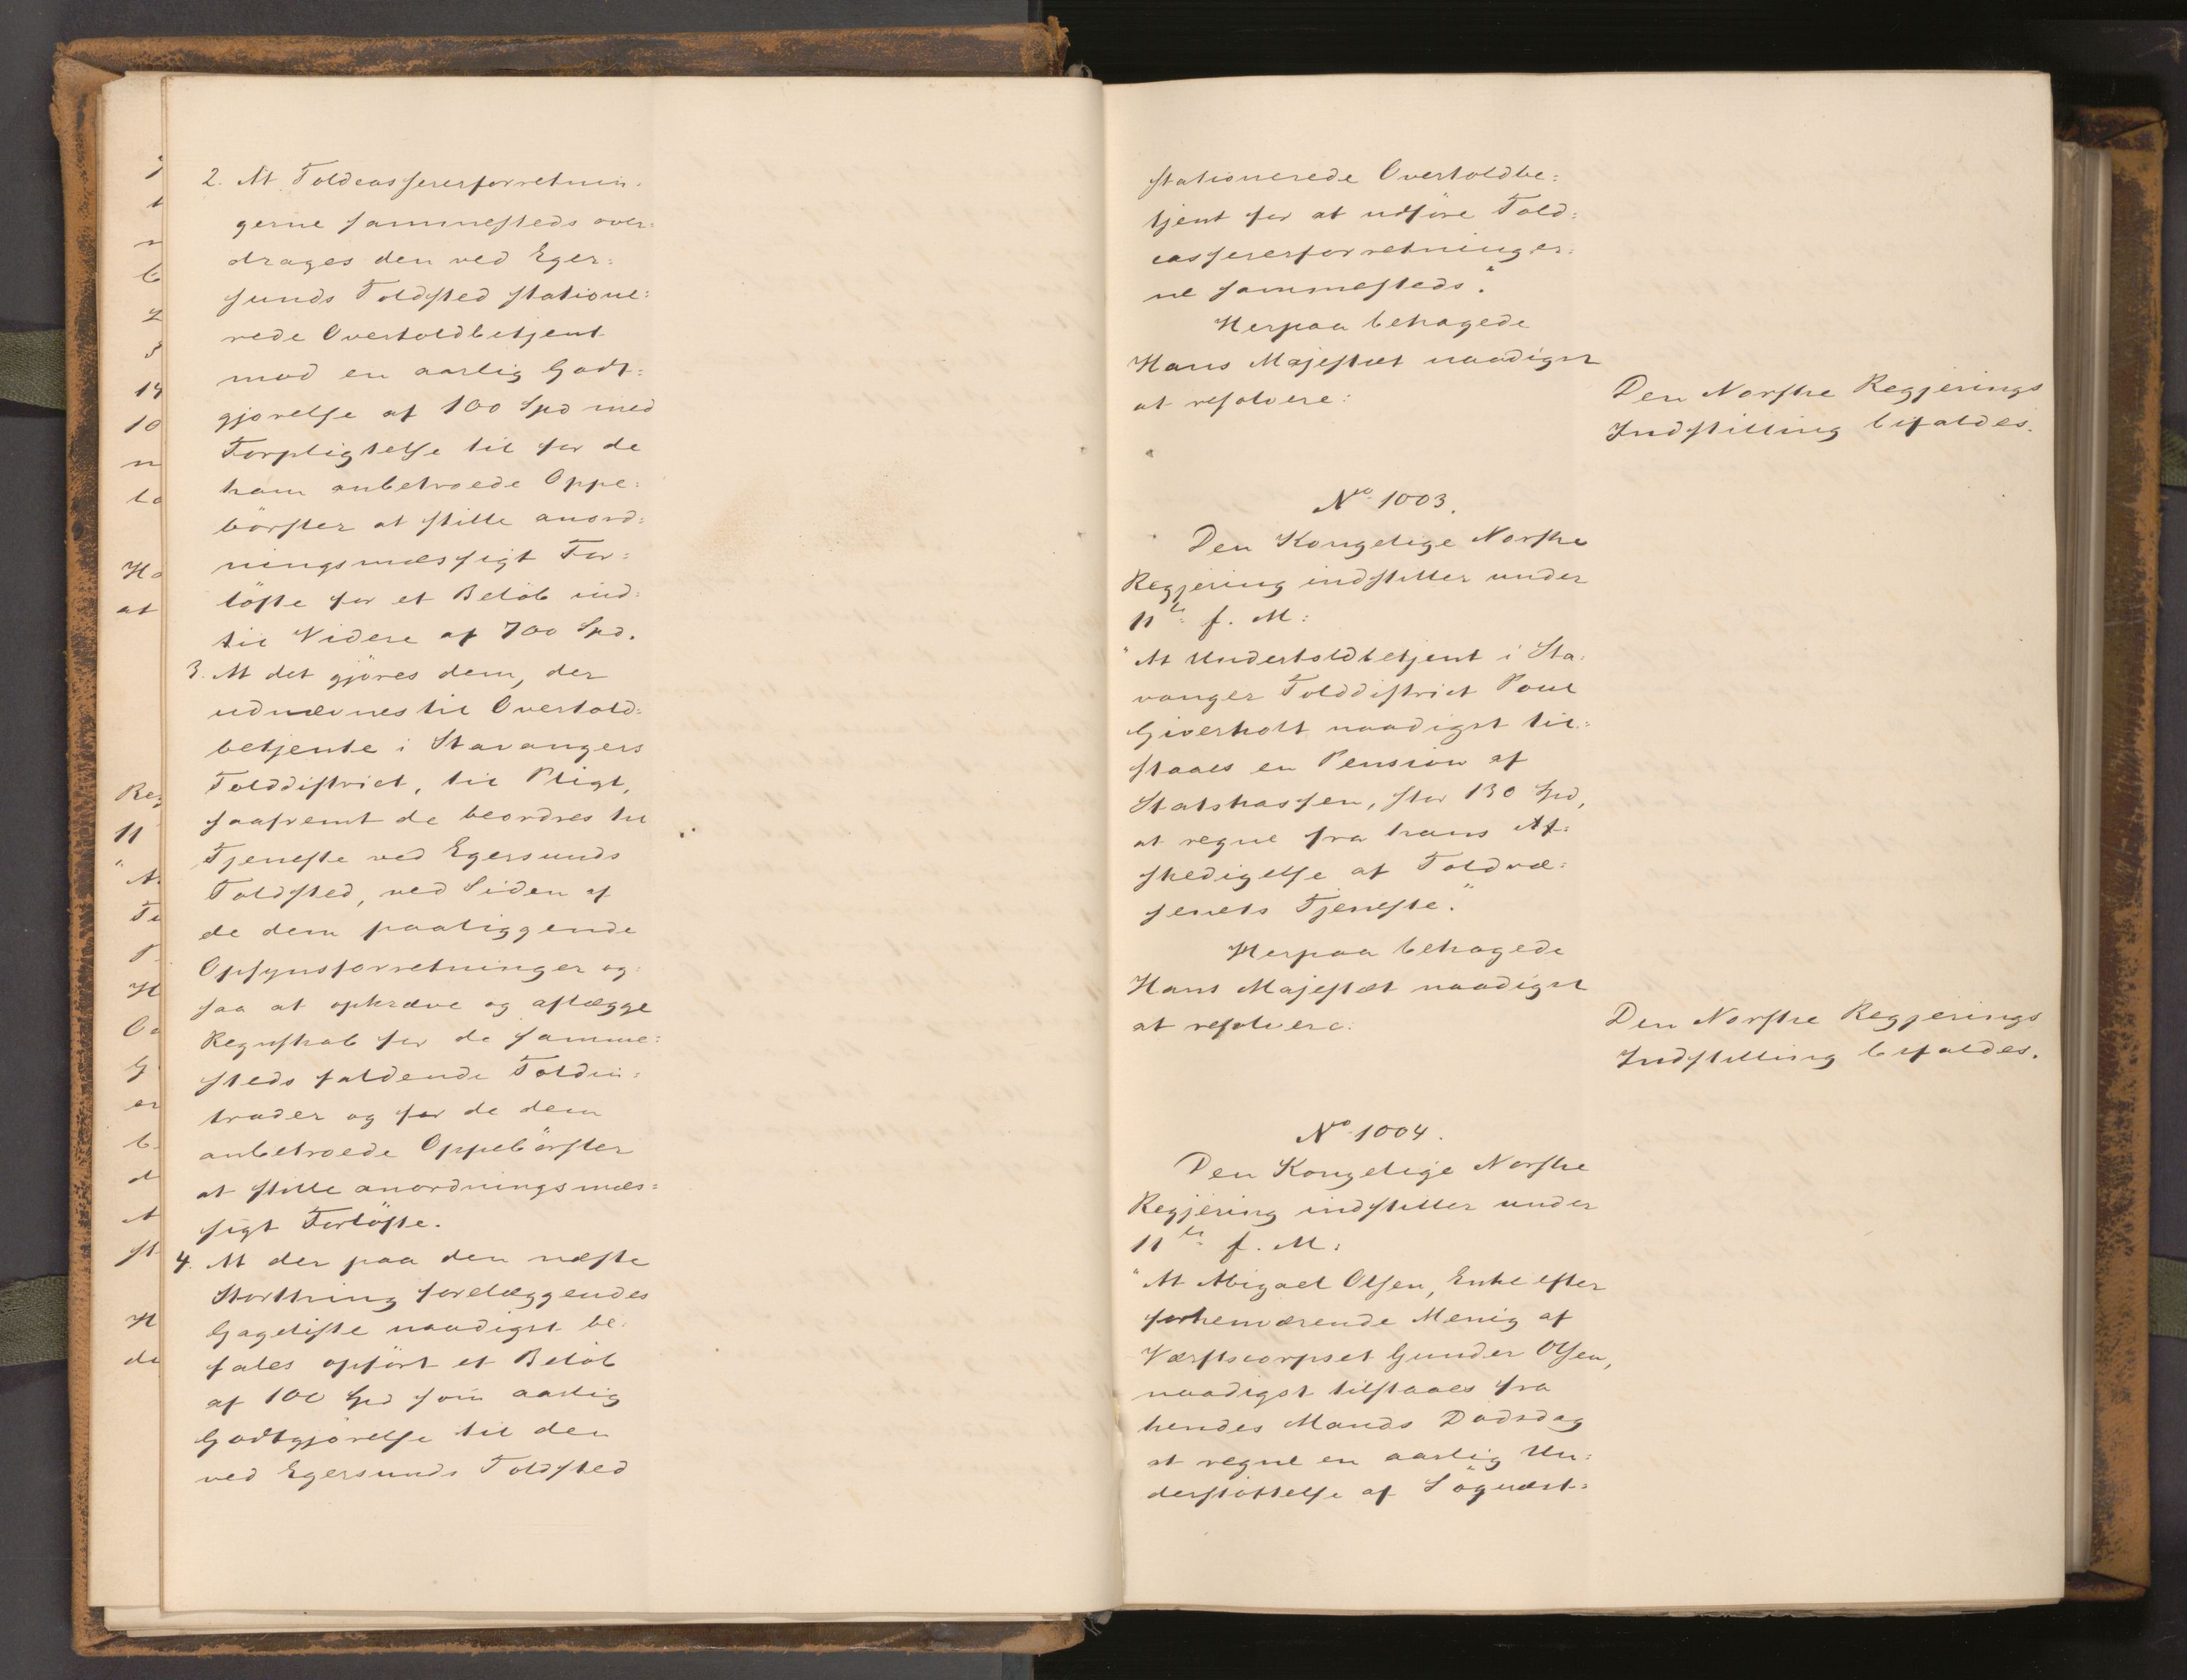 2. At Toldcassererforretnin-
gerne sammesteds over-
drages den ved Eger-
sunds Toldsted statione-
rede Overtoldbetjent
mod en aarlig Godt-
gjørelse af 100 Spd med
Forpligtelse til for de
ham anbetroede Oppe-
börsler at stille anord-
ningsmæssigt For-
löfte for et Belöb ind-
til Videre af 700 Spd.
3. At det gjöres dem, der
udnævnes til Overtold-
betjente i Stavangers
Tolddistrict, til Pligt,
saafremt de beordres til
Tjeneste ved Egersunds
Toldsted, ved Siden af
de dem paaliggende
Opsynsforretninger og-
saa at opkræve og aflægge
Regnskab for de samme-
steds faldende Toldin-
trader og for de dem
anbetroede Oppebörsler
at stille anordningsmæs-
sigt Forlöfte.
4. At der paa den næste
Storthing forelæggendes
Gageliste naadigst be-
fales opfört et Belöb
af 100 Spd som aarlig
Godtgjörelse til den
ved Egersunds Toldsted
stationerede Overtoldbe-
tjent for at udföre Told-
cassererforretninger-
ne sammesteds."
Herpaa behagede
Hans Majestæt naadigst
at resolvere:
Den Norske Regjerings
Indstilling bifaldes.
No 1003.
Den Kongelige Norske
Regjering indstiller under
11te f. M:
"At Undertoldbetjent i Sta-
vanger Tolddistrict Poul
Giverholt naadigst til-
staaes en Pension af
Statskassen, stor 130 Spd,
at regne fra hans Af-
skedigelse af Toldvæ-
senets Tjeneste."
Herpaa behagede
Hans Majestæt naadigst
at resolvere:
Den Norske Regjerings
Indstilling bifaldes.
No 1004.
Den Kongelige Norske
Regjering indstiller under
11te f. M:
"At Abigael Olsen, Enke efter
forhenværende Menig af
Værftscorpset Gunder Olsen,
naadigst tilstaaes fra
hendes Mands Dødsdag
at regne en aarlig Un-
derstöttelse af Söqvæst-